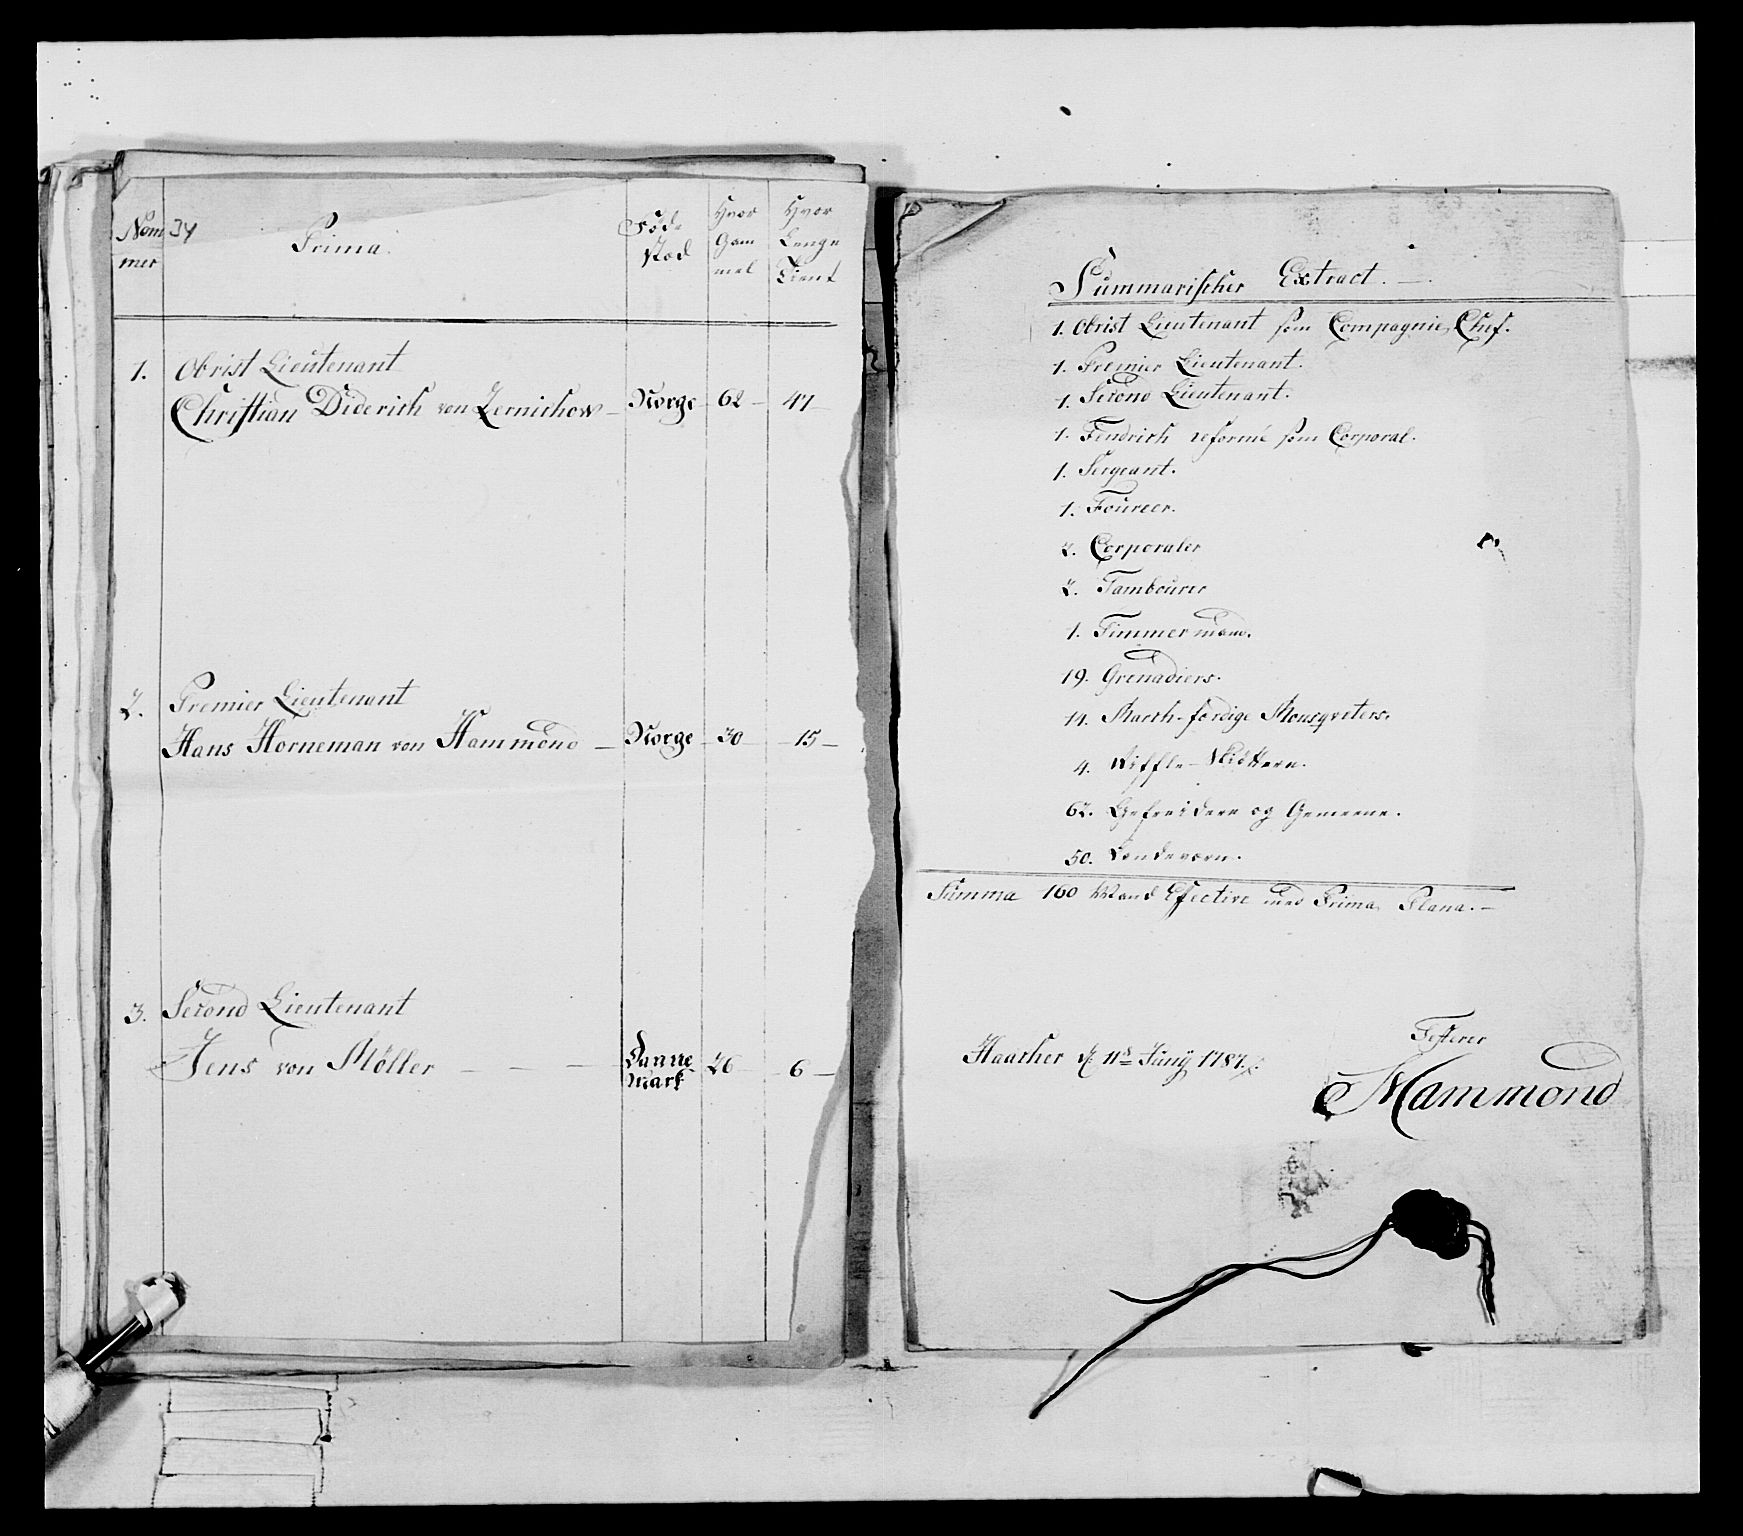 Nom
mer
34
Prima.
Föde
Stad
Hvor
Gam
mel
Hvor
Lenge
Tient
1. Obrist Lieutenant
Christian Diderich von Zernichow – Norge 62 – 47 –
2. Premier Lieutenant
Hans Horneman von Hammond – Norge – 30 – 15 –
3. Second Lieutenant
Jens von Möller – – – Danne
Mark 26 – 6 –
Summarischer Extract. –.
1. Obrist Lieutenant som Compagnie Chef.
1. Premier Lieutenant.
1. Second Lieutenant.
1. Fendrich reformé som Corporal.
1. Sergeant.
1. Foureer.
2. Corporaler
2. Tambourer
1. Timmermand.
19. Grenadiers.
14. March-færdige Mousqveters.
4. Riffle-Skÿttere.
62. Gefreidere og Gemeene.
50. Landeværn.
Summa 160 Mand Efective med Prima Plana. –
Haather d: 11te Junÿ 1787.
Testerer
Hammond